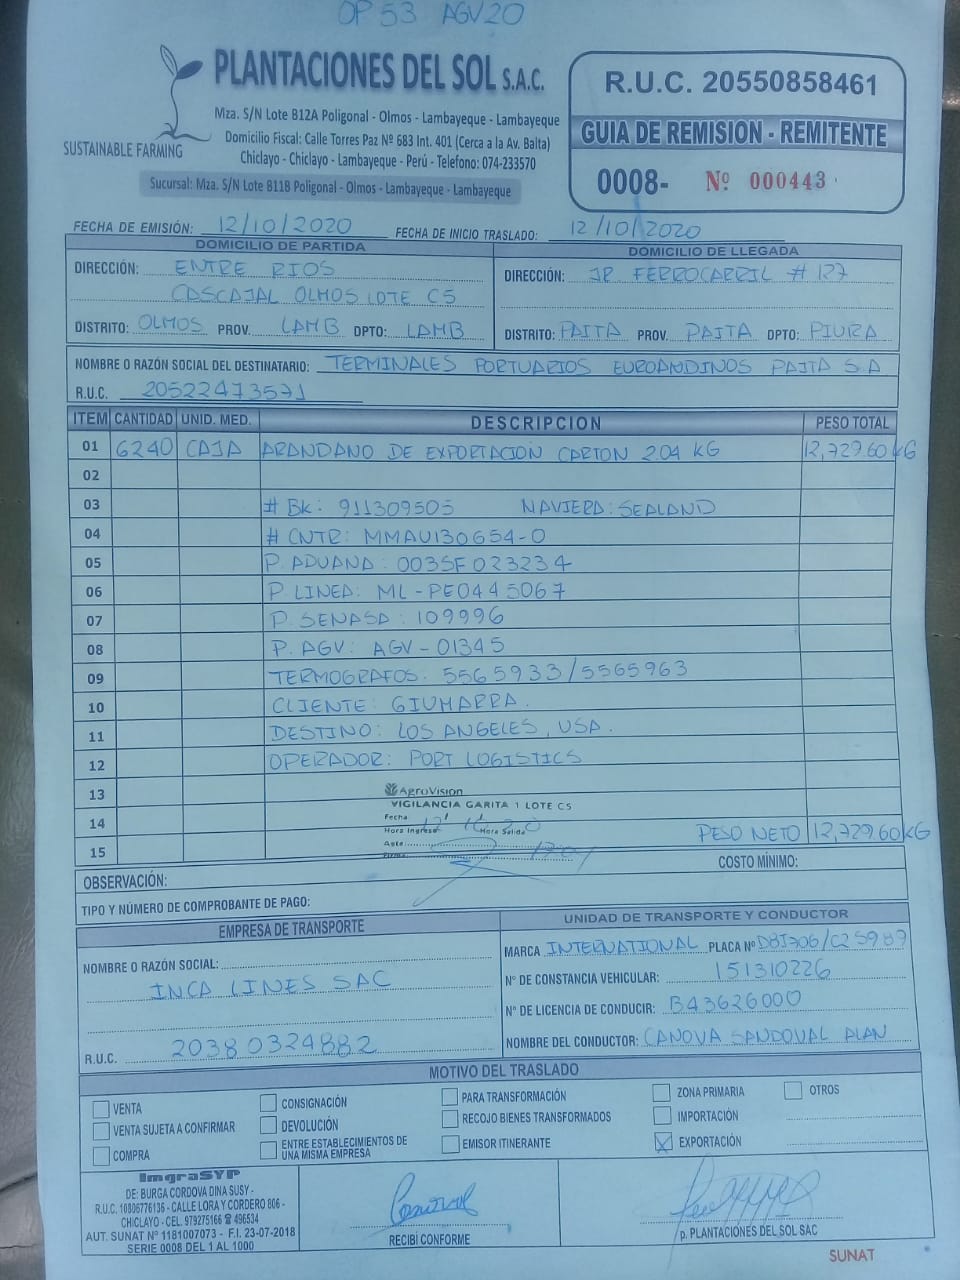 OP 53 AGV20
PLANTACIONES DEL SOL S.A.C.
SUSTAINABLE FARMING
Mza. S/N Lote B12A Poligonal - Olmos - Lambayeque - Lambayeque
Domicilio Fiscal: Calle Torres Paz Nº 683 Int. 401 (Cerca a la Av. Balta)
Chiclayo - Chiclayo - Lambayeque - Perú - Telefono: 074-233570
Sucursal: Mza. S/N Lote B11B Poligonal - Olmos - Lambayeque - Lambayeque
R.U.C. 20550858461
GUIA DE REMISION - REMITENTE
0008- Nº 000443
FECHA DE EMISIÓN: 12/10/2020 FECHA DE INICIO TRASLADO: 12/10/2020
DOMICILIO DE PARTIDA
DIRECCIÓN: ENTRE RIOS
CASCAJAL OLMOS LOTE C5
DISTRITO: OLMOS PROV. LAMB DPTO: LAMB
DOMICILIO DE LLEGADA
DIRECCIÓN: JR FERROCARRIL # 127
DISTRITO: PAITA PROV. PAITA DPTO: PIURA
NOMBRE O RAZÓN SOCIAL DEL DESTINATARIO: TERMINALES PORTUARIOS EUROANDINOS PAITA S.A
R.U.C. 20522473571
ITEM CANTIDAD UNID. MED. DESCRIPCION PESO TOTAL
01 6240 CAJA ARANDANO DE EXPORTACION CARTON 2.04 KG 12,729.60 KG
02
03 # BK: 911309505 NAVIERA: SEALAND
04 # CNTR: MMAU130654-0
05 P. ADUANA: 003SF023234
06 P. LINEA: ML-PE0445067
07 P. SENASA: 109996
08 P. AGV: AGV-01345
09 TERMOGRAFOS: 5565933/5565963
10 CLIENTE: GIUMARRA.
11 DESTINO: LOS ANGELES, USA.
12 OPERADOR: PORT LOGISTICS
13 AgroVision
VIGILANCIA GARITA 1 LOTE C5
Fecha 12 10 20
14 Hora Ingreso Hora Salida PESO NETO 12,729.60 KG
Agte.
15
COSTO MÍNIMO:
OBSERVACIÓN:
TIPO Y NÚMERO DE COMPROBANTE DE PAGO:
EMPRESA DE TRANSPORTE
NOMBRE O RAZÓN SOCIAL:
INCA LINES SAC
R.U.C. 20380324882
UNIDAD DE TRANSPORTE Y CONDUCTOR
MARCA INTERNATIONAL PLACA Nº
Nº DE CONSTANCIA VEHICULAR: 151310226
Nº DE LICENCIA DE CONDUCIR: B43626000
NOMBRE DEL CONDUCTOR: CANOVA SANDOVAL ALAN
MOTIVO DEL TRASLADO
VENTA
VENTA SUJETA A CONFIRMAR
COMPRA
CONSIGNACIÓN
DEVOLUCIÓN
ENTRE ESTABLECIMIENTOS DE
UNA MISMA EMPRESA
PARA TRANSFORMACIÓN
RECOJO BIENES TRANSFORMADOS
EMISOR ITINERANTE
ZONA PRIMARIA
IMPORTACIÓN
EXPORTACIÓN
OTROS
ImgraSYP
DE: BURGA CORDOVA DINA SUSY -
R.U.C. 10806776136 - CALLE LORA Y CORDERO 806 -
CHICLAYO - CEL. 979275166 ☎ 496534
AUT. SUNAT Nº 1181007073 - F.I. 23-07-2018
SERIE 0008 DEL 1 AL 1000
RECIBÍ CONFORME
p. PLANTACIONES DEL SOL SAC
SUNAT